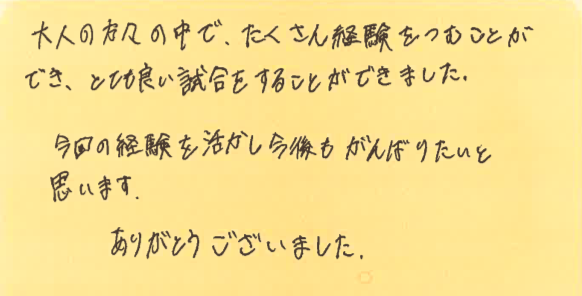 大人の方々の中で、たくさん経験をつむことが
でき、とても良い試合をすることができました。
今回の経験を活かし今後もがんばりたいと
思います。
ありがとうございました。